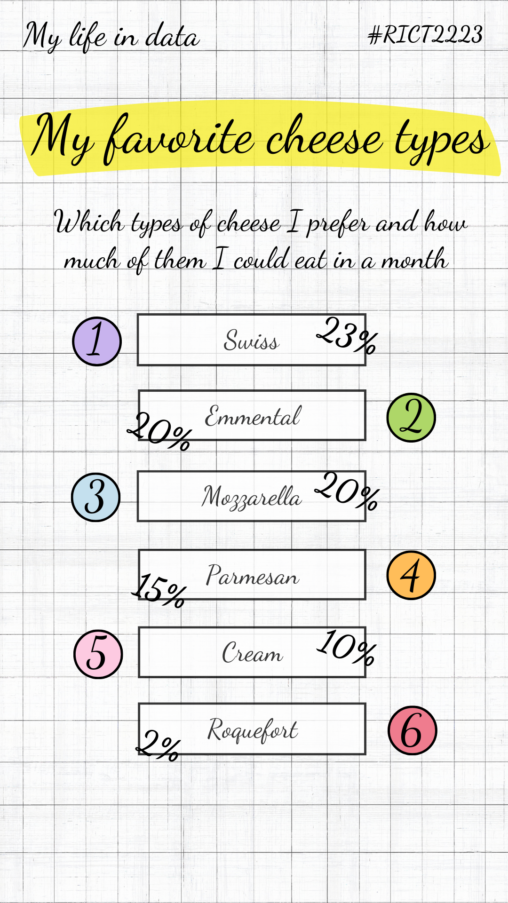 My life in data
#RICT2223
My favorite cheese types
Which types of cheese I prefer and how
much of them I could eat in a month
1 Swiss 23%
20% Emmental 2
3 Mozzarella 20%
15% Parmesan 4
5 Cream 10%
2% Roquefort 6